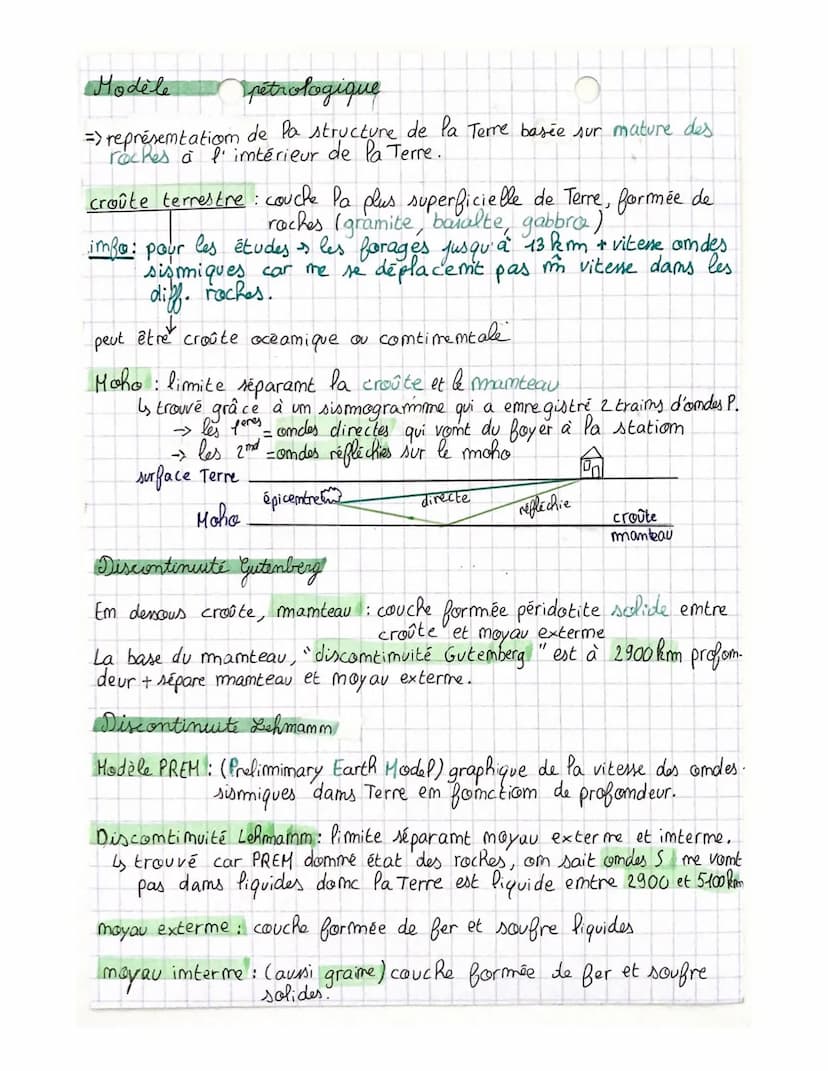 Modèle pétrologique
=> représentation de la structure de la Terre basée sur nature des
roches à l'intérieur de la Terre.
croûte terrestre : couche la plus superficielle de Terre, formée de
roches (granite, basalte, gabbro)
info : pour les études → les forages jusqu'à 13 km + vitesse ondes
sismiques car ne se déplacent pas m̂ vitesse dans les
diff. roches.
peut être croûte océanique ou continentale
Moho : limite séparant la croûte et le manteau
↳ trouvé grâce à un sismogramme qui a enregistré 2 trains d'ondes P.
→ les 1ères = ondes directes qui vont du foyer à la station
→ les 2nd = ondes réfléchies sur le moho
surface Terre
épicentre directe réfléchie
Moho croûte
manteau
Discontinuité Gutenberg
En dessous croûte, manteau : couche formée péridotite solide entre
croûte et noyau externe
La base du manteau, "discontinuité Gutemberg" est à 2900 km profon-
deur + sépare manteau et noyau externe.
Discontinuité Lehmann
Modèle PREM : (Prelimimary Earth Model) graphique de la vitesse des ondes
sismiques dans Terre en fonction de profondeur.
Discontinuité Lehmann : limite séparant noyau externe et interne.
↳ trouvé car PREM donné état des roches, on sait ondes S ne vont
pas dans liquides donc la Terre est liquide entre 2900 et 5100 km
noyau externe : couche formée de fer et soufre liquides
noyau interne : (aussi graine) couche formée de fer et soufre
solides.